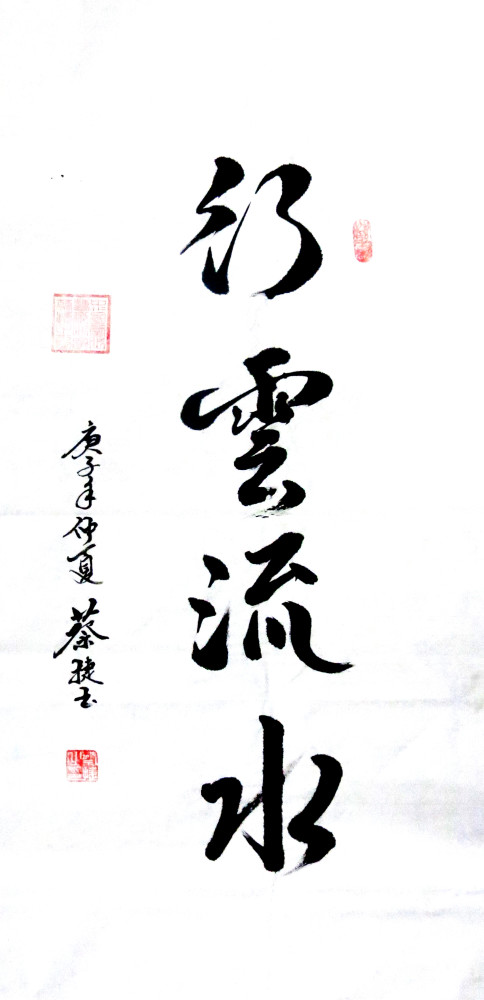 行雲流水
庚子年仲夏 蔡捷书